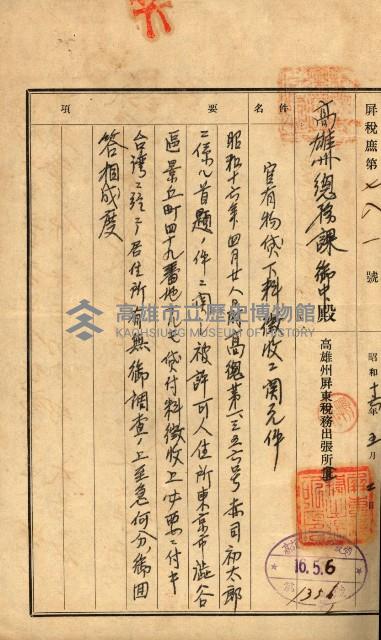 屏稅庶第七八一號
昭和十六年五月二日
高雄州總務課御中殿
高雄州屏東稅務出張所
件名
官有物貸下料徵收ニ関スル件
要
項
昭和十六年四月廿八日附高總第一三五六号赤司初太郎
ニ係ル首題ノ件ニ関シ被許可人住所東京市澁谷
區景丘町四十九番地
貸付料徵收上必要ニ付キ
台湾ニ於テ居住所有無御調査ノ上至急何分ノ御回
答相成度
高雄市立歷史博物館
KAOHSIUNG MUSEUM OF HISTORY
16.5.6
1356